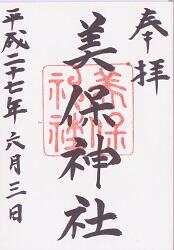 奉拝
美保神社
平成二十七年六月三日
美保
神社